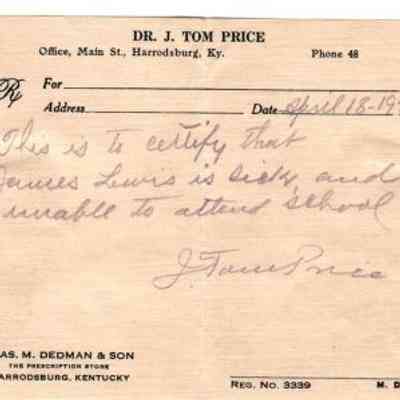 DR. J. TOM PRICE
Office, Main St., Harrodsburg, Ky. Phone 48
Rx For
Address Date April 18-19
This is to certify that
James Lewis is sick and
unable to attend school
J. Tom Price
AS. M. DEDMAN & SON
THE PRESCRIPTION STORE
ARRODSBURG, KENTUCKY
REG. NO. 3339 M. D